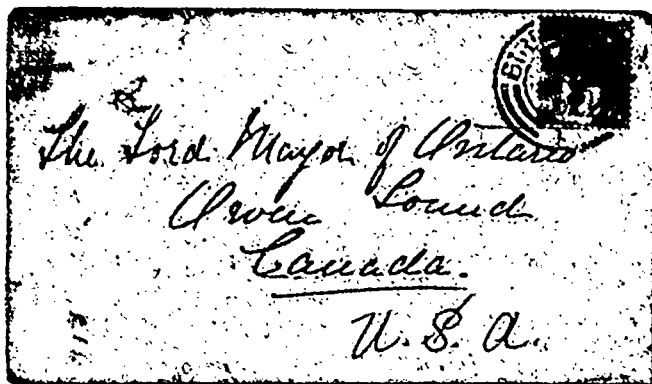 The Lord Mayor of Ontario
Owen Sound
Canada.
U. S. A.